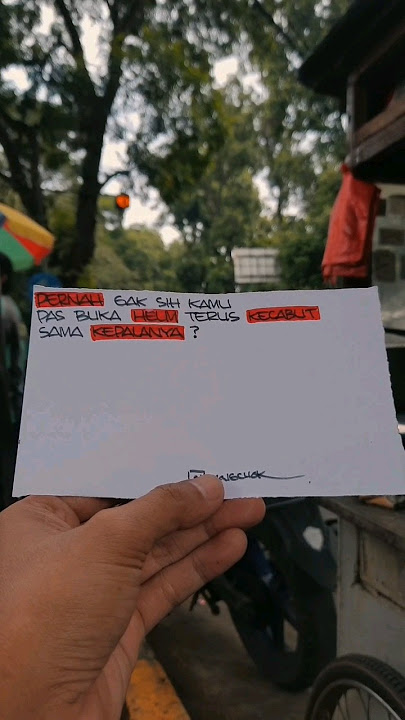 PERNAH GAK SIH KAMU
PAS BUKA HELM TERUS KECABUT
SAMA KEPALANYA ?